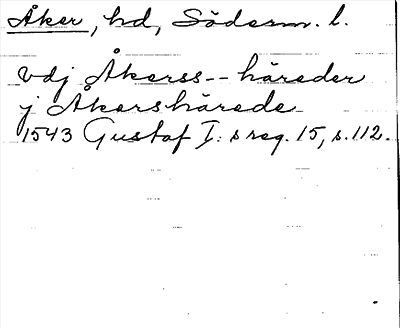 Åker, hd, Söderm. l.
vdj Åkerss-- häreder
j Åkershärede
1543 Gustaf I:s reg. 15, s. 112.